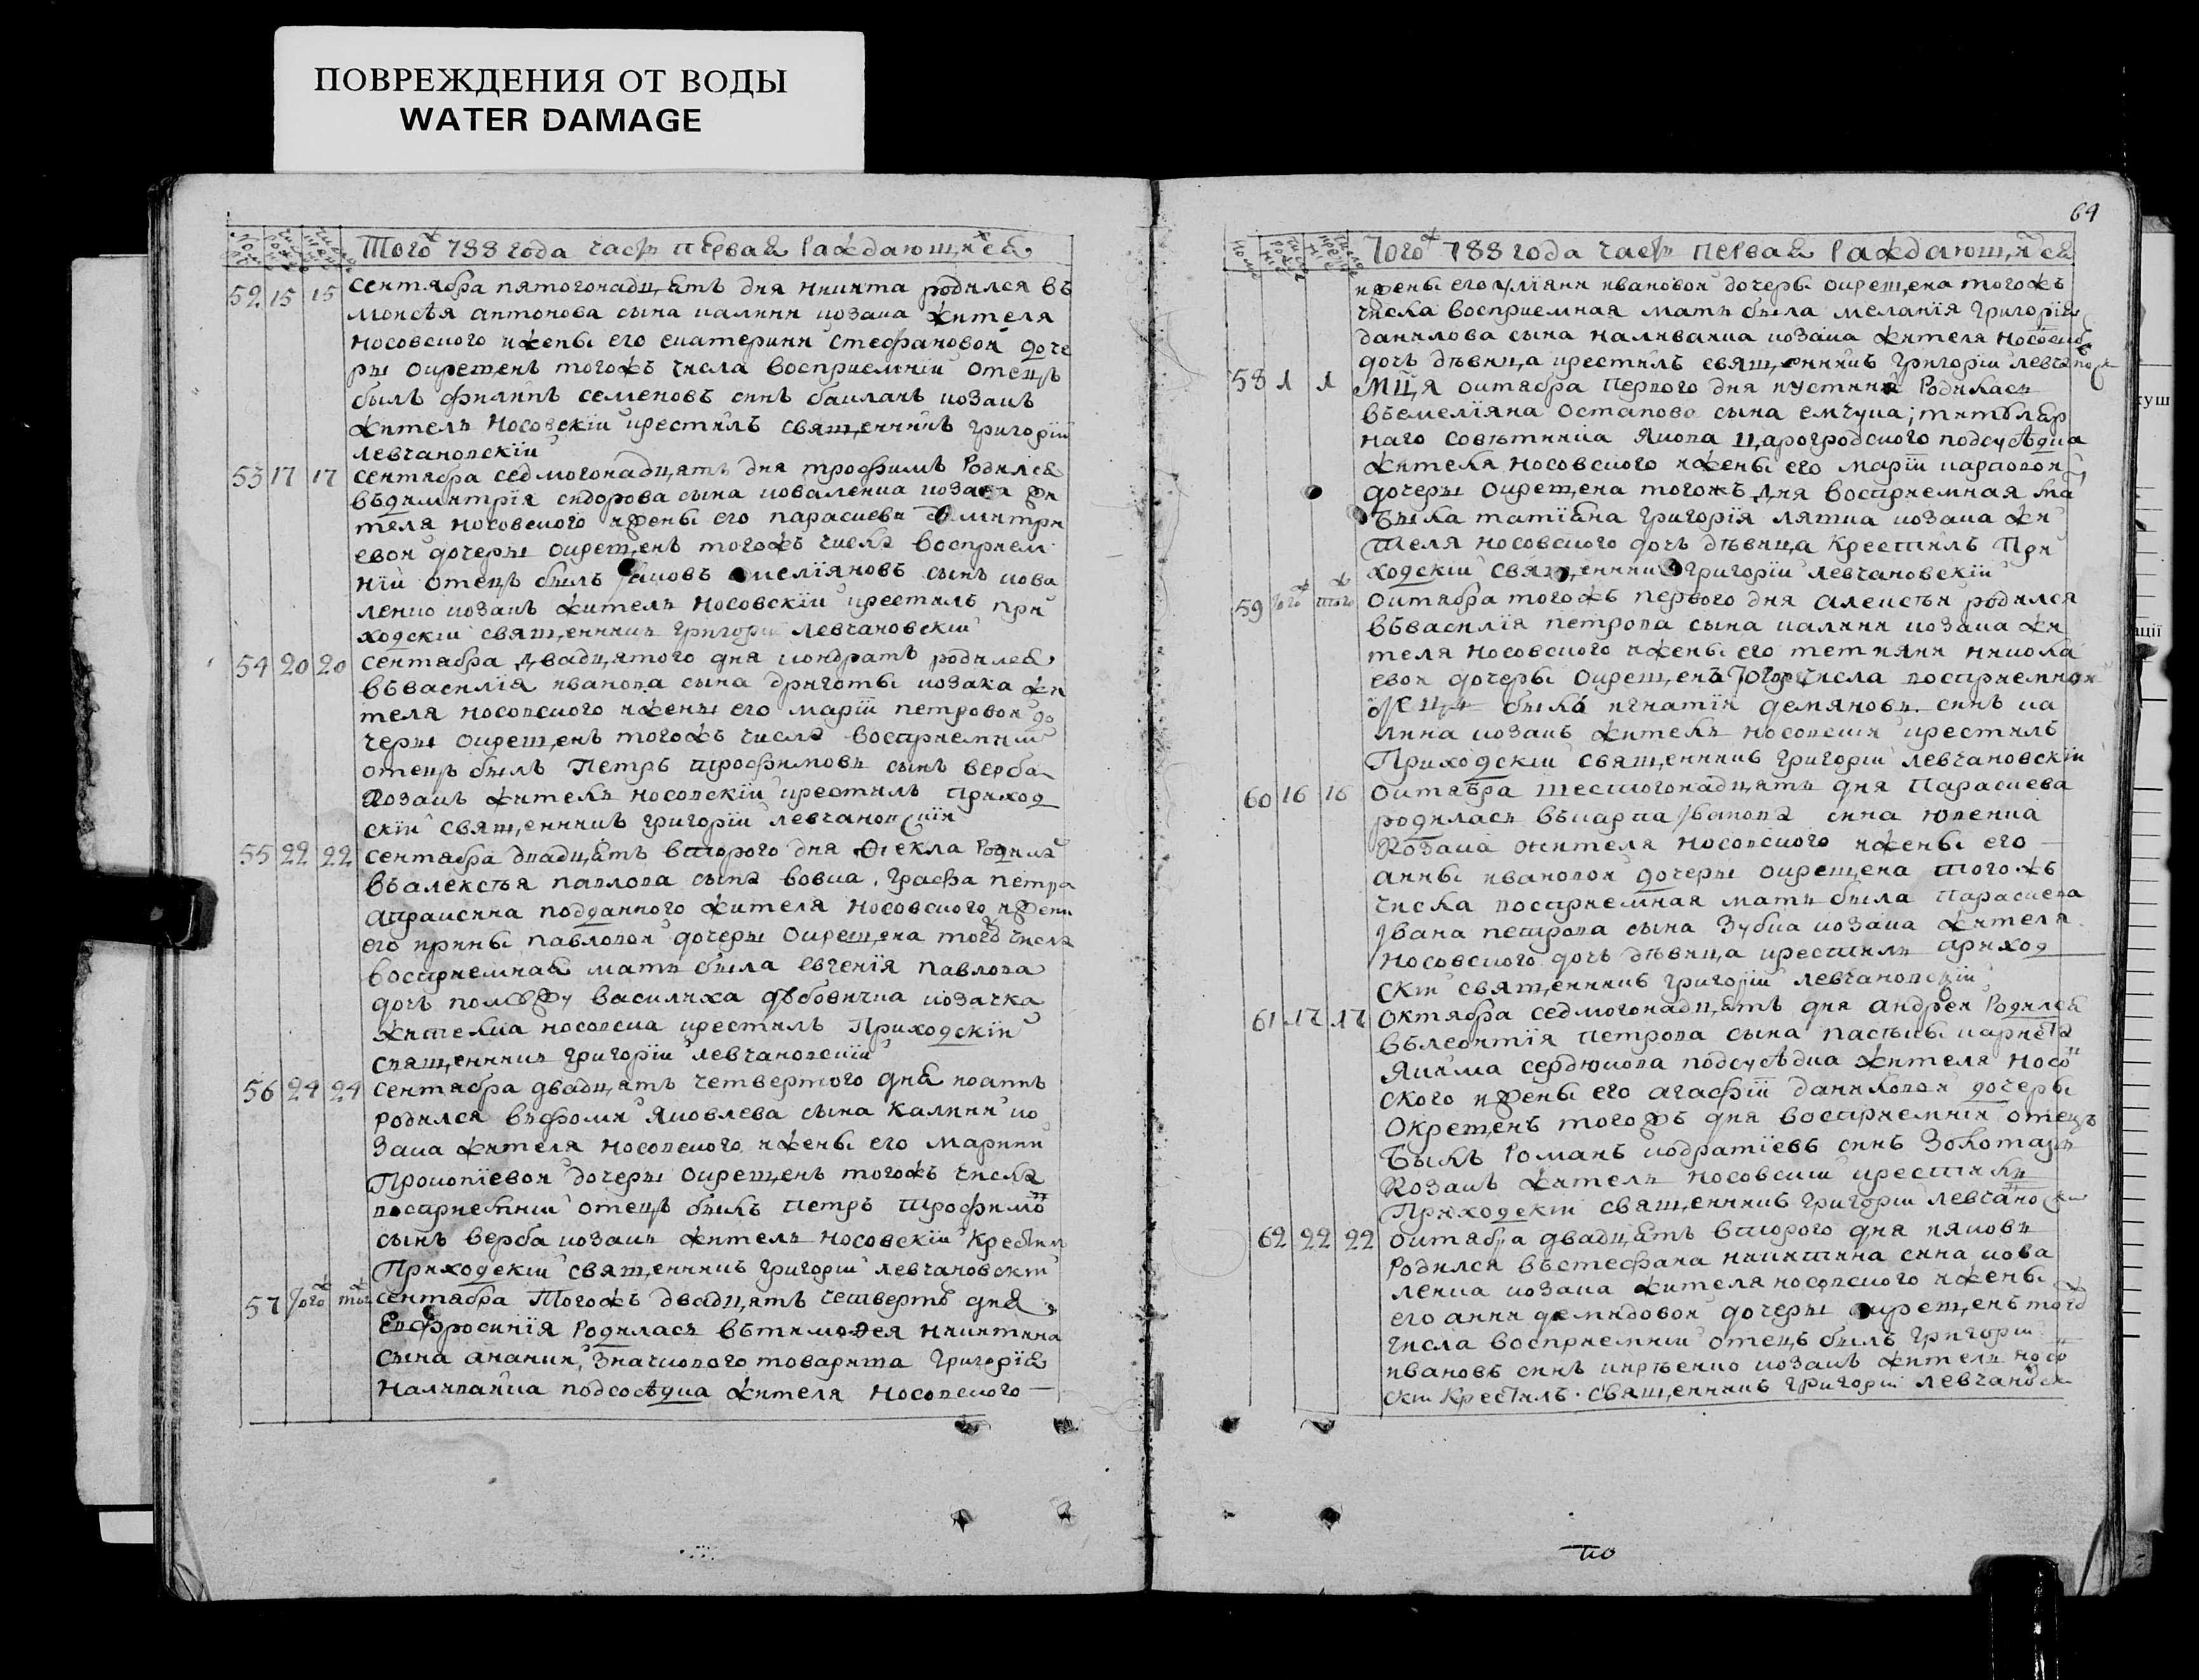 ПОВРЕЖДЕНИЯ ОТ ВОДЫ
WATER DAMAGE
Того ж 788 года часть первая раждающихся
52 15 15 сентября пятогонадцять дня никита родился въ
моисѣя антонова сына калини козака жителя
носовского и жены его екатерини стефановой доче
ры окрещенъ тогожъ числа восприемній отецъ
былъ филипъ семеновъ синъ бакланъ козакъ
житель носовскїй крестилъ священникъ григорїй
левчановскїй
53 17 17 сентября седмогонадцять дня трофимъ родился
въ димитрїя сидорова сына коваленка козака жи
теля носовского и жены его парасиеви димитри
евой дочеры окрещенъ тогожъ числа восприем
нїй отецъ былъ яковъ емелїяновъ сынъ кова
ленко козакъ житель носовскїй крестилъ при
ходскїй священникъ григорїй левчановскїй
54 20 20 сентября двадцятого дня кондратъ родился
въ василїя иванова сына дриготы козака жи
теля носовского и жены его марїи петровой до
черы окрещенъ тогожъ числа восприемній
отецъ былъ петръ трофимовъ сынъ верба
козакъ житель носовскїй крестилъ приход
скїй священникъ григорїй левчановскїй
55 22 22 сентября двадцять второго дня ѳекла родила
въ алексѣя павлова сына вовка графа петра
апраксина подданного жителя носовского и жени
его ирины павловой дочеры окрещена того ж числа
восприемная мать была евгенїя павлова
дочь по мужу василиха козачка
жителка носовска крестилъ приходскїй
священникъ григорїй левчановскїй
56 24 24 сентября двадцять четвертого дня иоаннъ
родился въ фоми яковлева сына калини ко
зака жителя носовского и жены его марини
прокопїевой дочеры окрещенъ тогожъ числа
восприемній отецъ былъ петръ трофимо
сынъ верба козакъ житель носовскїй крестилъ
приходскїй священникъ григорїй левчановскїй
57 того ж того ж сентября тогожъ двадцять четверто дня
евфросинїя родилась въ тимофея никитина
сына ананки, значкового товариша григорїя
наливайка подсосѣдка жителя носовского
64
Того ж 788 года часть первая раждающихся
и жены его улїяни ивановой дочеры окрещена тогожъ
числа восприемная мать была меланїя григорїя
данилова сына наливайка козака жителя носовск
дочь дѣвица крестилъ священникъ григорїй левчановск
58 1 1 мця октября первого дня иустина родилась
въ емелїяна остапова сына емчука; титуляр
наго совѣтника якова царогродского подсусѣдка
жителя носовского и жены его марїи карповой
дочеры окрещена тогожъ дня восприемная ма
была татїяна григорїя козака жи
теля носовского дочь дѣвица крестилъ при
ходскїй священникъ григорїй левчановскїй
59 того ж того ж октября тогожъ первого дня алексѣй родился
въ василїя петрова сына калини козака жи
теля носовского и жены его тетияни никола
евой дочеры окрещенъ того ж числа восприемний
отецъ былъ игнатїй демяновъ синъ ка
лина козакъ житель носовскїй крестилъ
приходскїй священникъ григорїй левчановскїй
60 16 16 октября шестогонадцять дня парасиева
родилась въ карпа иванова сина юрченка
козака жителя носовского и жены его
анны ивановой дочеры окрещена тогожъ
числа восприемная мать была парасиева
ивана петрова сына зубка козака жителя
носовского дочь дѣвица крестилъ приход
скїй священникъ григорїй левчановскїй
61 17 17 октября седмогонадцять дня андрей родился
въ леонтїя петрова сына корнета
якима сердюкова подсусѣдка жителя носов
ского и жены его агафїи даниловой дочеры
окрещенъ тогожъ дня восприемнїй отецъ
былъ романъ кодратїевъ синъ золотарь
козакъ житель носовскїй крестилъ
приходскїй священникъ григорїй левчановски
62 22 22 октября двадцять второго дня иаковъ
родился въ стефана никитина сина кова
ленка козака жителя носовского и жены
его анни демидовой дочеры окрещенъ того ж
числа восприемнїй отецъ былъ григорїй
ивановъ синъ кирѣенко козакъ житель носов
скїй крестилъ священникъ григорїй левчановск